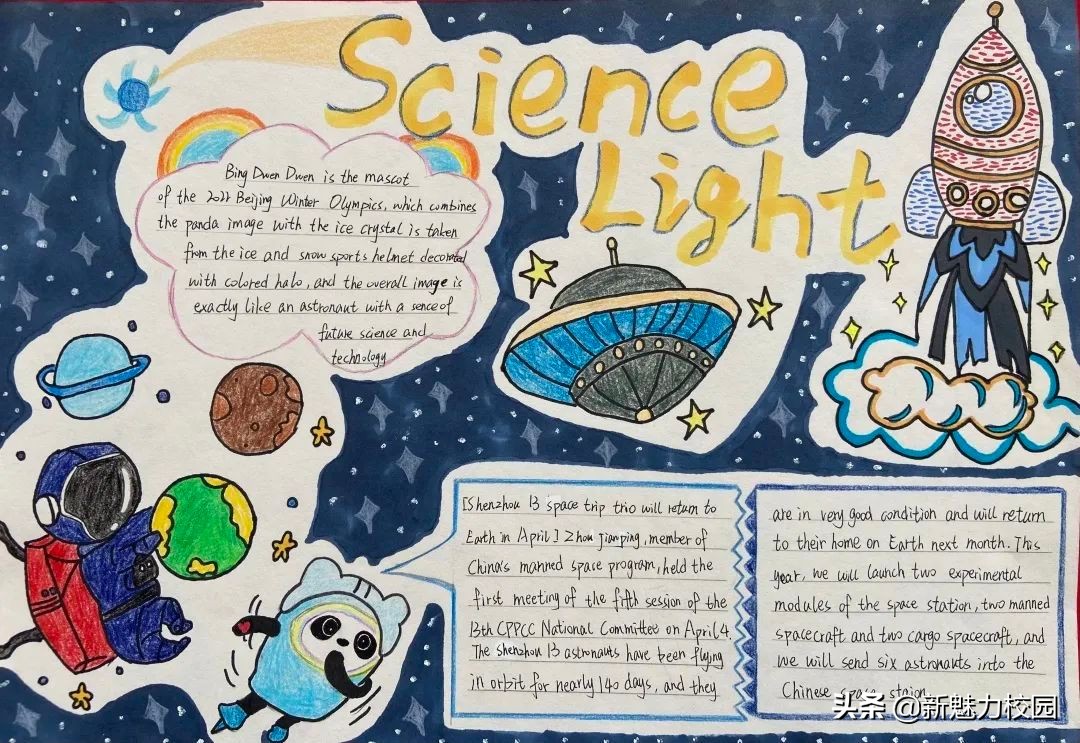 Science
Light
Bing Dwen Dwen is the mascot
of the 2022 Beijing Winter Olympics, which combines
the panda image with the ice crystal is taken
from the ice and snow sports helmet decorated
with colored halo, and the overall image is
exactly like an astronaut with a sence of
future science and
technology
[Shenzhou 13 space trip trio will return to
Earth in April] Zhou jianping, member of
China's manned space program, held the
first meeting of the fifth session of the
13th CPPCC National Committee on April 4.
The shenzhou 13 astronauts have been flying
in orbit for nearly 140 days, and they
are in very good condition and will return
to their home on Earth next month. This
year, we will launch two experimental
modules of the space station, two manned
spacecraft and two cargo spacecraft, and
we will send six astronauts into the
Chinese space staion
头条 @新魅力校园